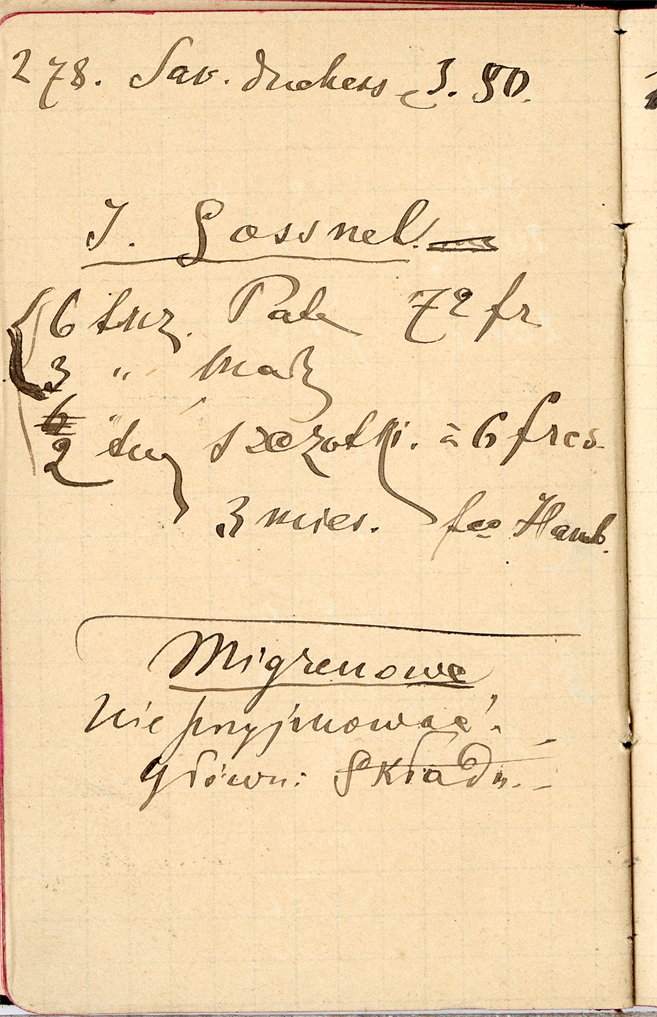 278. Sav. Duchess 3.50.
J. Gossnel.
6 tuz. Pate 72 fr
3 " małz
2 tuz szczotki. à 6 frcs
3 mies. fco Hamb.
Migrenowe
Nie przyjmować.
Główn: Składu.